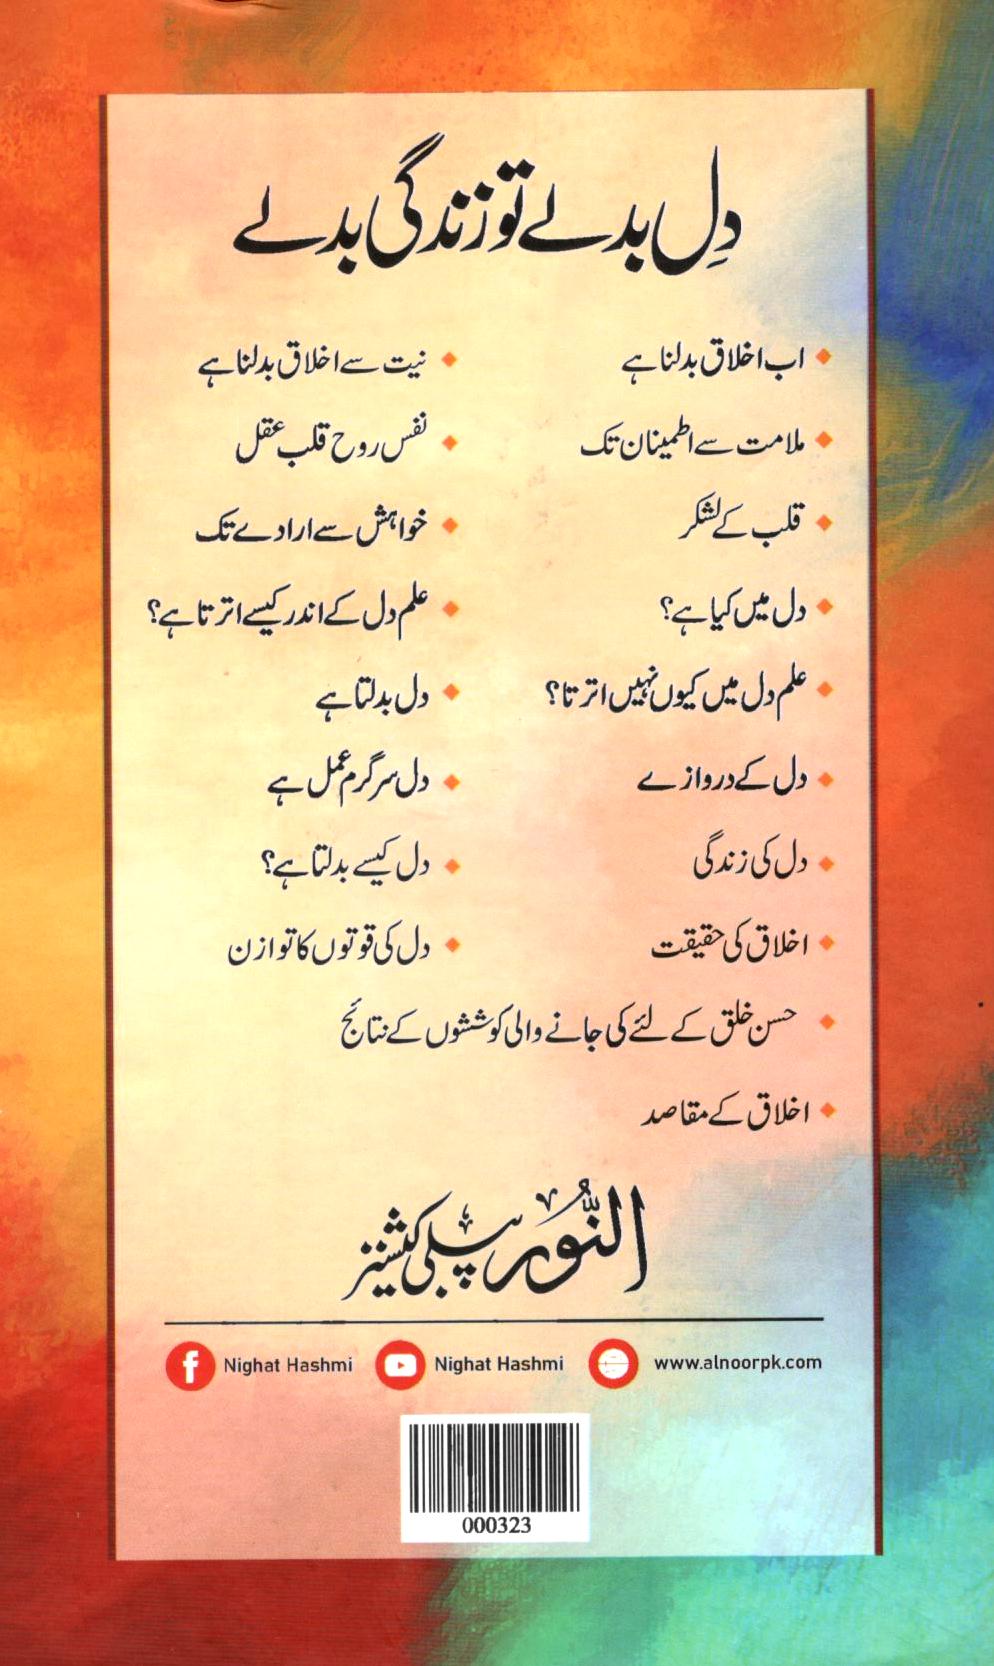 دِل بدلے تو زندگی بدلے
اب اخلاق بدلنا ہے
نیت سے اخلاق بدلنا ہے
ملامت سے اطمینان تک
نفس روح قلب عقل
قلب کے لشکر
خواہش سے ارادے تک
دل میں کیا ہے؟
علم دل کے اندر کیسے اترتا ہے؟
علم دل میں کیوں نہیں اترتا؟
دل بدلتا ہے
دل کے دروازے
دل سرگرم عمل ہے
دل کی زندگی
دل کیسے بدلتا ہے؟
اخلاق کی حقیقت
دل کی قوتوں کا توازن
حسن خلق کے لئے کی جانے والی کوششوں کے نتائج
اخلاق کے مقاصد
النُّور پبلی کیشنز
Nighat Hashmi Nighat Hashmi www.alnoorpk.com
000323